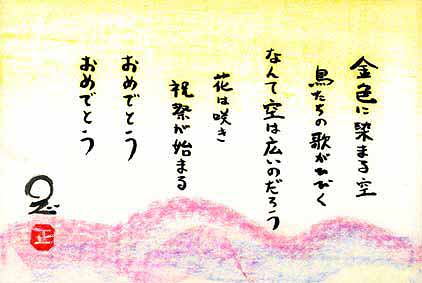 金色に染まる空
鳥たちの歌がひびく
なんて空は広いのだろう
花は咲き
祝祭が始まる
おめでとう
おめでとう
正